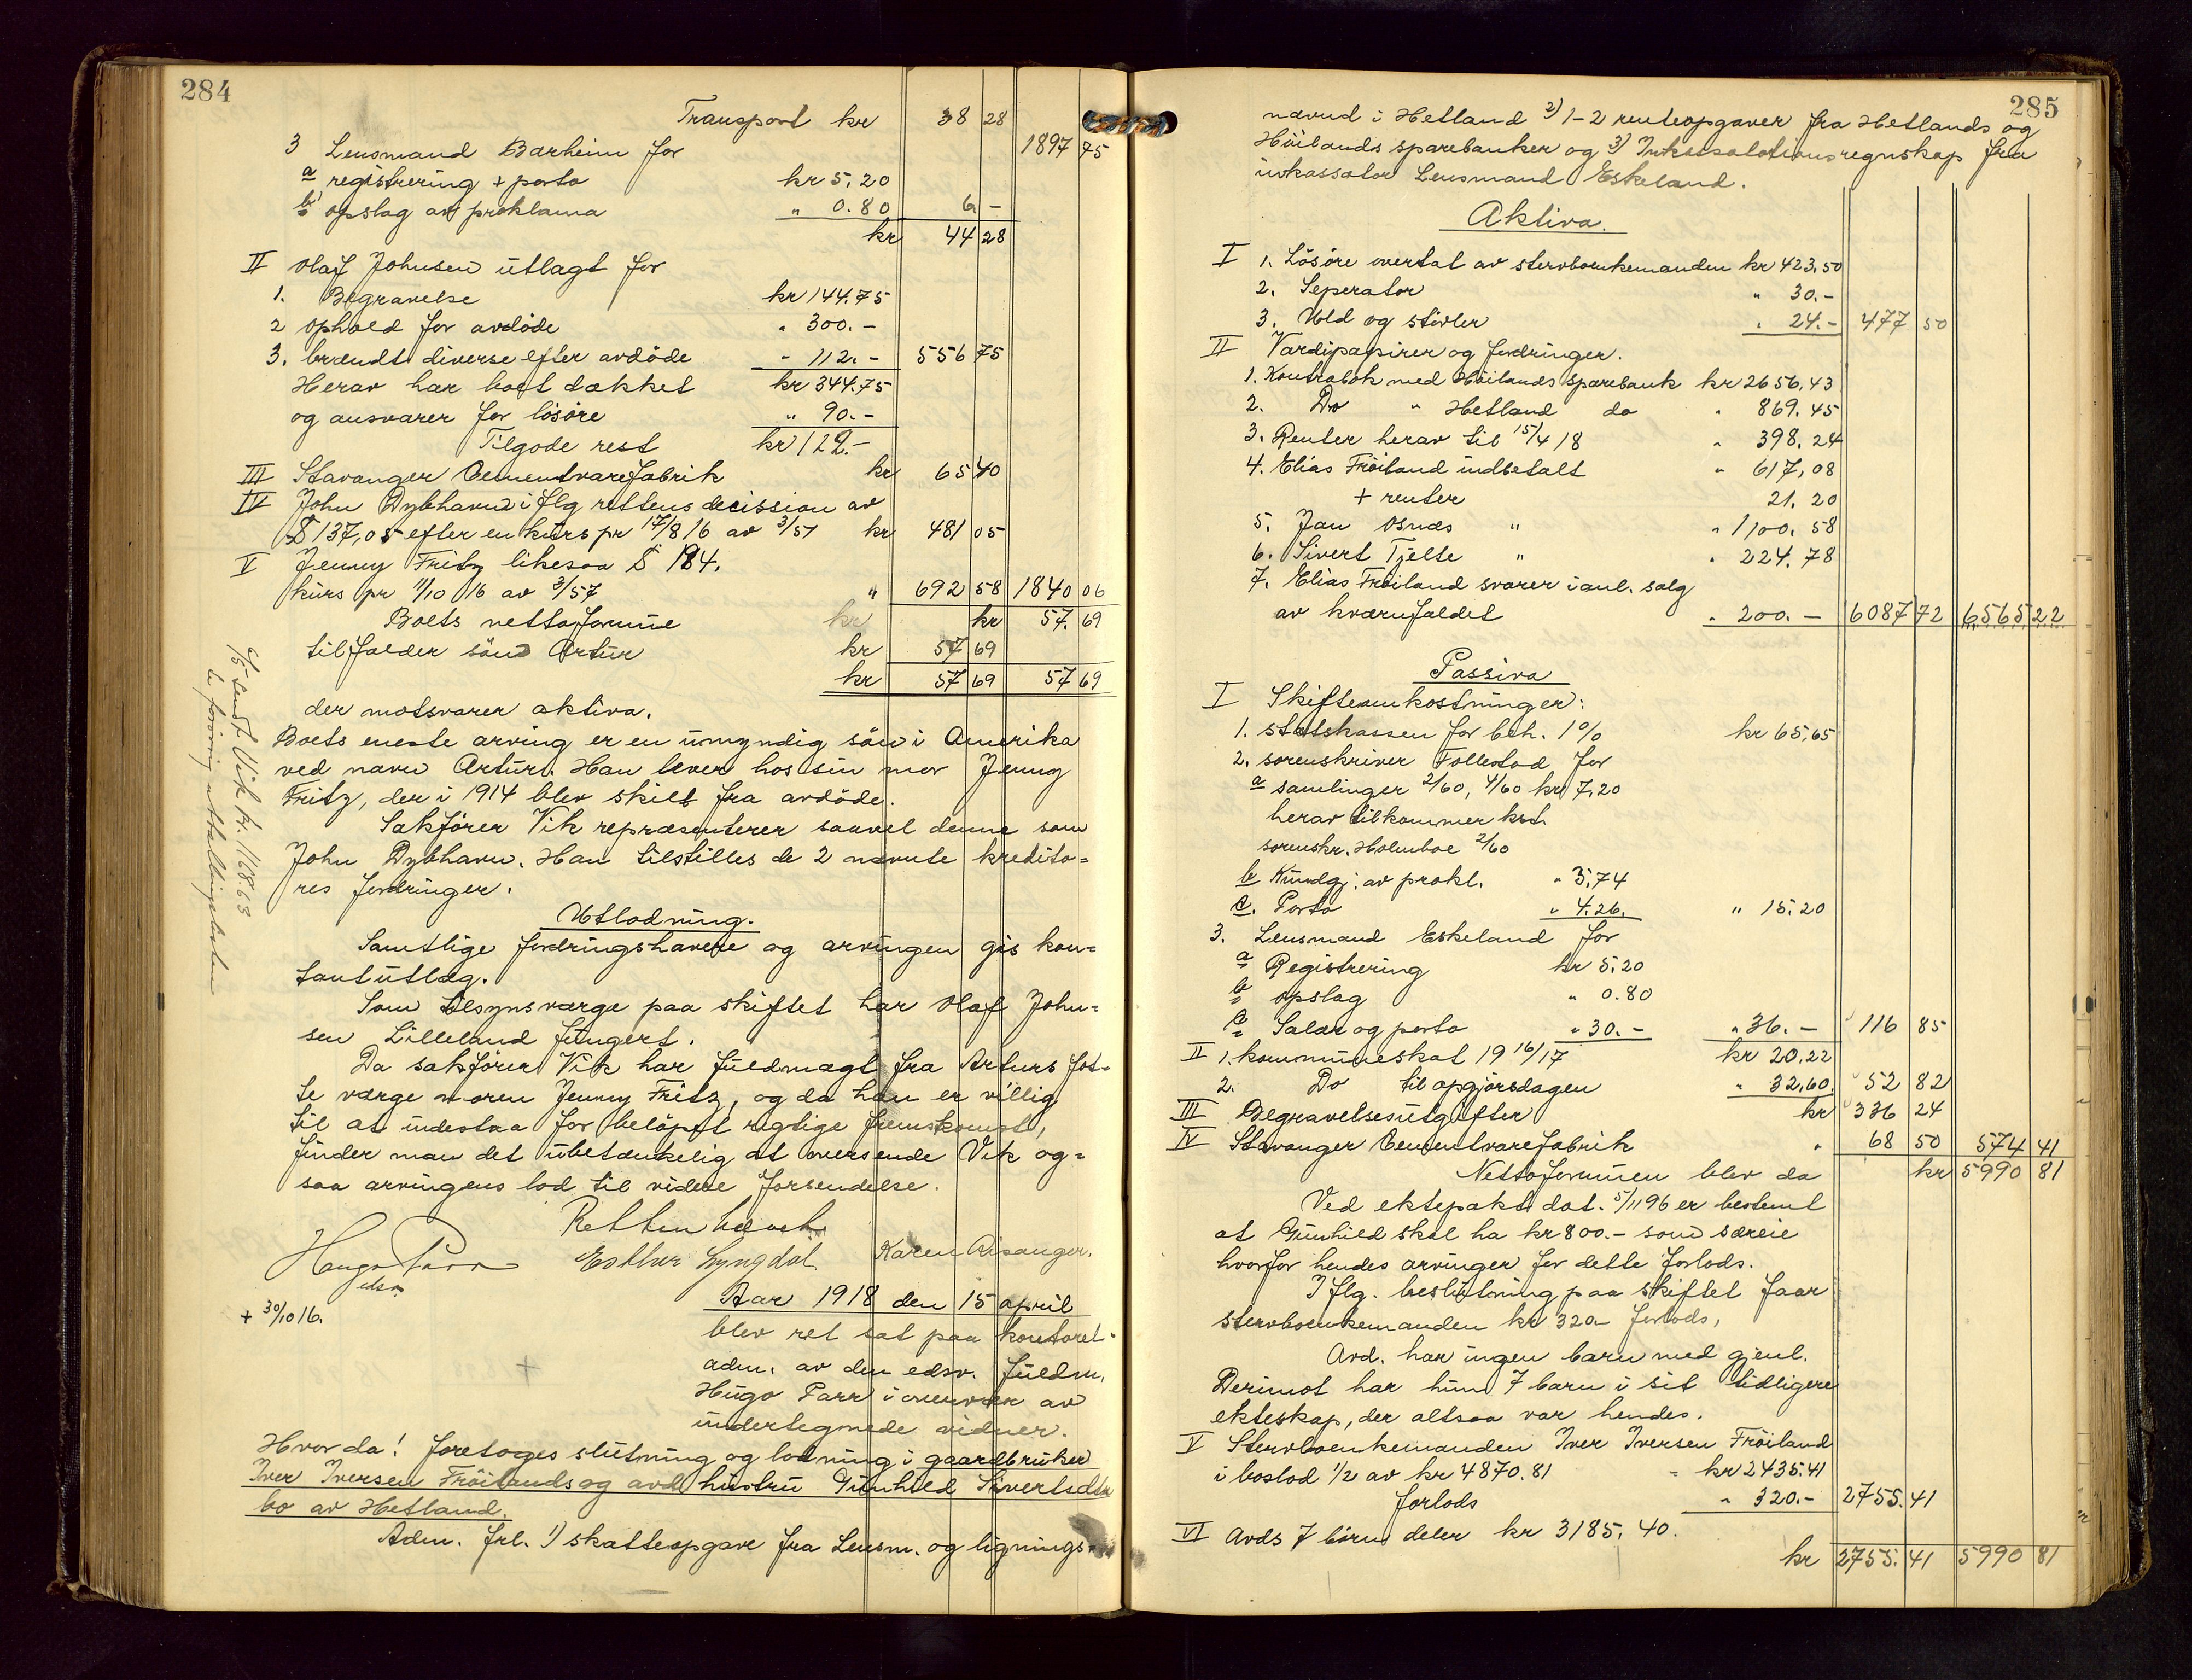 284
Transport kr 38 28
3 Lensmand Barheim for 1897 75
a registrering + porto kr 5.20
b opslag av proklama " 0.80 6. –
kr 44 28
II Olaf Johnsen utlagt for
1. Begravelse kr 144.75
2 ophold for avdöde " 300.–
3. brændt diverse efter avdöde " 112.– 556 75
Herav har boet dækket kr 344.75
og ansvarer for lösöre " 90.–
Tilgode rest kr 122.–
III Stavanger Cementvarefabrik kr 65 40
IV John Dybhavn iflg rettens decission av
$ 137,05 efter en kurs pr 17/8 16 av 3/51 kr 481 05
V Jenny Fritz likesaa $ 194.
kurs pr 11/10 16 av 3/57 " 692 58 1840 06
Boets nettoformue kr kr 57. 69
tilfalder sönn Artur kr 57 69
kr 57 69 57 69
der motsvarer aktiva.
Boets eneste arving er en umyndig sön i Amerika
ved navn Artur. Han lever hos sin mor Jenny
Fritz, der i 1914 blev skilt fra avdöde.
Sakförer Vik repræsenterer saavel denne som
John Dybhavn. Han tilstilles de 2 nævnte kredito=
res fordringer.
Utlodning.
Samtlige fordringshavere og arvingen gis kon=
tant utlæg.
Som tilsynsværge paa skiftet har Olaf John=
sen Lilleland fungert.
Da sakförer Vik har fuldmagt fra Arturs föd-
te værge moren Jenny Fritz, og da han er villig
til at indestaa for belöpet rigtige fremkomst,
finder man det ubetænkelig at oversende Vik og=
saa arvingens lod til videre forsendelse.
Retten hævet.
Hugo Parr Esther Lyngdal Karen Risanger.
edsv.
6/5 sendt Vik kr. 1168.63
+ 30/10 16.
Aar 1918 den 15 april
blev ret sat paa kontoret
adm. av den edsv. fuldm.
Hugo Parr i overvær av
undertegnede vidner.
Hvor da! foretoges slutning og lodning i gaardbruker
Iver Iversen Fröilands og avd. hustru Gunhild Sivertsdtr
bo av Hetland.
Adm. frl. 1) skatteopgave fra Lensm. og lignings-
285
nævnd i Hetland 2) 1-2 renteopgaver fra Hetlands og
Höilands sparebanker og 3) Inkassationsregnskap fra
inkassator Lensmand Eskeland.
Aktiva.
I 1. Lösöre overtat av stervboenkemanden kr 423.50
2. Seperator " 30.–
3. Uld og stövler " 24.– 477 50
II Værdipapirer og fordringer.
1. Kontrabok med Höilands sparebank kr 2656,43
2. Do " Hetland do " 869.45
3. Renter herav til 15/4 18 " 398.24
4. Elias Fröiland indbetalt " 617,08
+ renter 21.20
5. Jan Osnes " " 1100.58
6. Sivert Tjelte " " 224.78
7. Elias Fröiland svarer i anl. salg
av kværnfaldet " 200.– 6087 72 6565 22
Passiva
I Skifteomkostninger:
1. statskassen for beh. 1% kr 65,65
2. sorenskriver Follestad for
a samlinger 2/60, 4/60 kr 7,20
herav tilkommer kst.
sorenskr. Holmboe 2/60
b Kundgj. av prokl. " 3,74
c. Porto " 4.26. " 15.20
3. Lensmand Eskeland for
a Registrering kr 5.20
b opslag " 0.80
c Salær og porto " 30.– " 36.– 116 85
II 1. kommuneskat 1916/17 kr 20.22
2. Do til opgjörsdagen " 32,60. 52 82
III Begravelsesutgifter kr 336 24
IV Stavanger Cementvarefabrik " 68 50 574 41
Nettoformuen blev da kr 5990 81
Ved ektepakt dat. 5/11 96 er bestemt
at Gunhild skal ha kr 800.– som særeie
hvorfor hendes arvinger for dette forlods.
Iflg. beslutning paa skiftet faar
stervboenkemanden kr 320.– forlods.
Avd. har ingen barn med gjenl.
Derimot har hun 7 barn i sit tidligere
ekteskap, der altsaa var hendes.
V Stervboenkemanden Iver Iversen Fröiland
i boslod 1/2 av kr 4870.81 " kr 2435.41
forlods " 320.– 2755. 41
VI Avds 7 börn deler kr 3185.40.
kr 2755. 41 5990 81